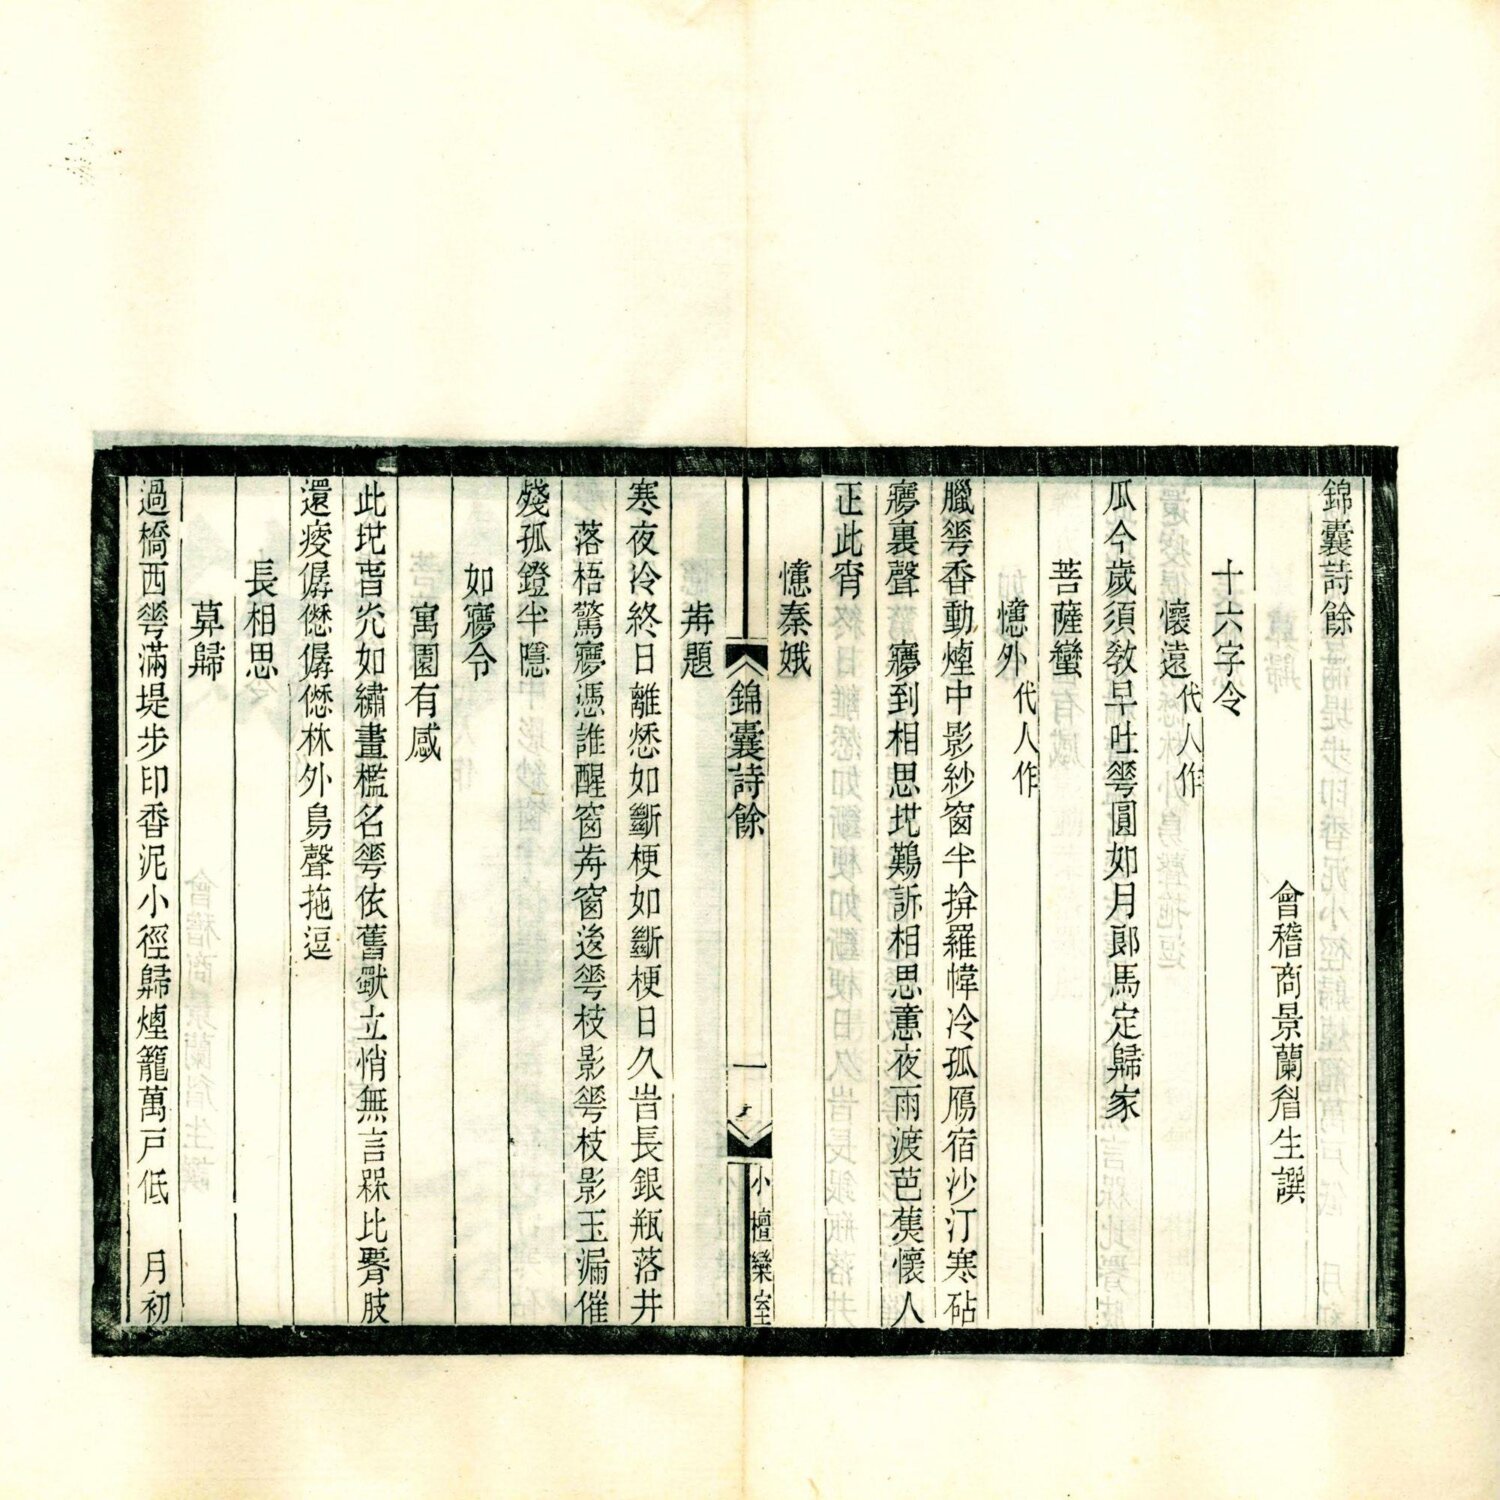 錦囊詩餘
會稽商景蘭眉生譔
十六字令
懷遠代人作
瓜今歲須敎早吐䔢圓如月郞馬定歸家
菩薩蠻
憶外代人作
臘䔢香動煙中影紗窗半揜羅幃冷孤鴈宿沙汀寒砧
㝱裏聲　㝱到相思地鷄訴相思意夜雨渡芭蕉懷人
正此宵
憶秦娥
歬題
寒夜冷終日離愁如斷梗如斷梗日久岧長銀瓶落井
落梧驚㝱憑誰醒窗歬窗後䔢枝影䔢枝影玉漏催
殘孤鐙半隱
如㝱令
寓園有感
此地舂光如繡畫檻名䔢依舊獸立悄無言槑比腎肢
還痠僝僽僝僽林外鳥聲拖逗
長相思
草歸
過橋西䔢滿堤步印香泥小徑歸煙籠萬戸低　月初
錦囊詩餘
一
小檀欒室